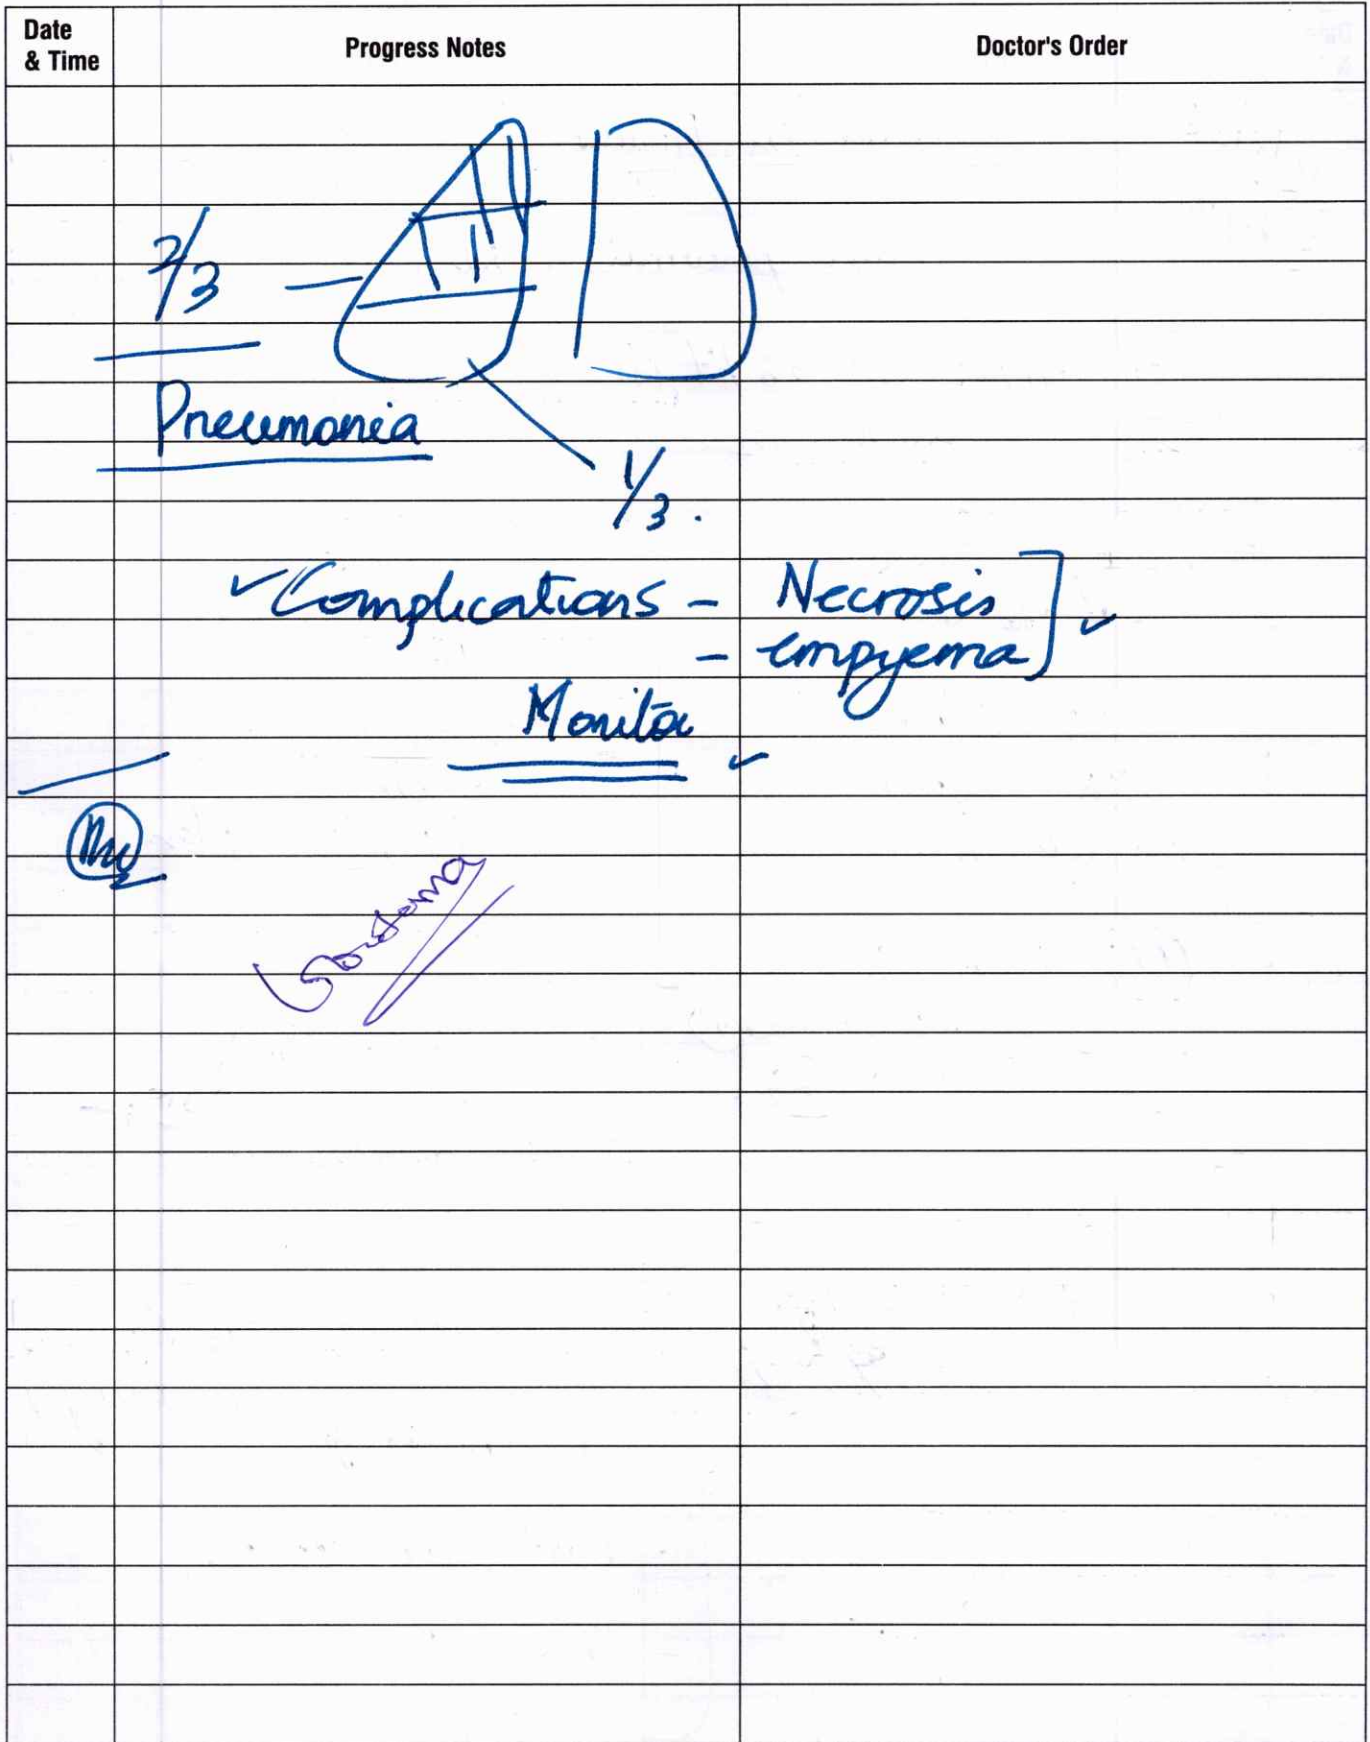 Date & Time Progress Notes Doctor's Order
2/3
Pneumonia
1/3.
✓ Complications - Necrosis
- empyema] ✓
Monitor ✓